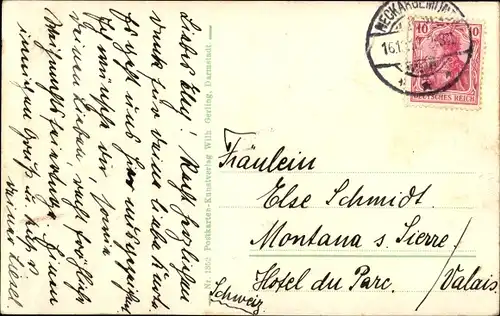 Liebes Elly! Recht herzlichen
Dank für deine liebe Karte.
Es geht uns hier ausgezeichnet
Ich wünsche dir, sowie
deinen Lieben, recht fröhliche
Weihnachtsfeiertage. Einen
innigen Gruß u. Kuß v.
deiner
Nr. 1352 Postkarten-Kunstverlag Wilh. Gerling, Darmstadt.
NECKARGEMÜND
16.1
10 10
DEUTSCHES REICH
Fräulein
Else Schmidt
Montana s. Sierre/
Hotel du Parc. Valais.
Schweiz